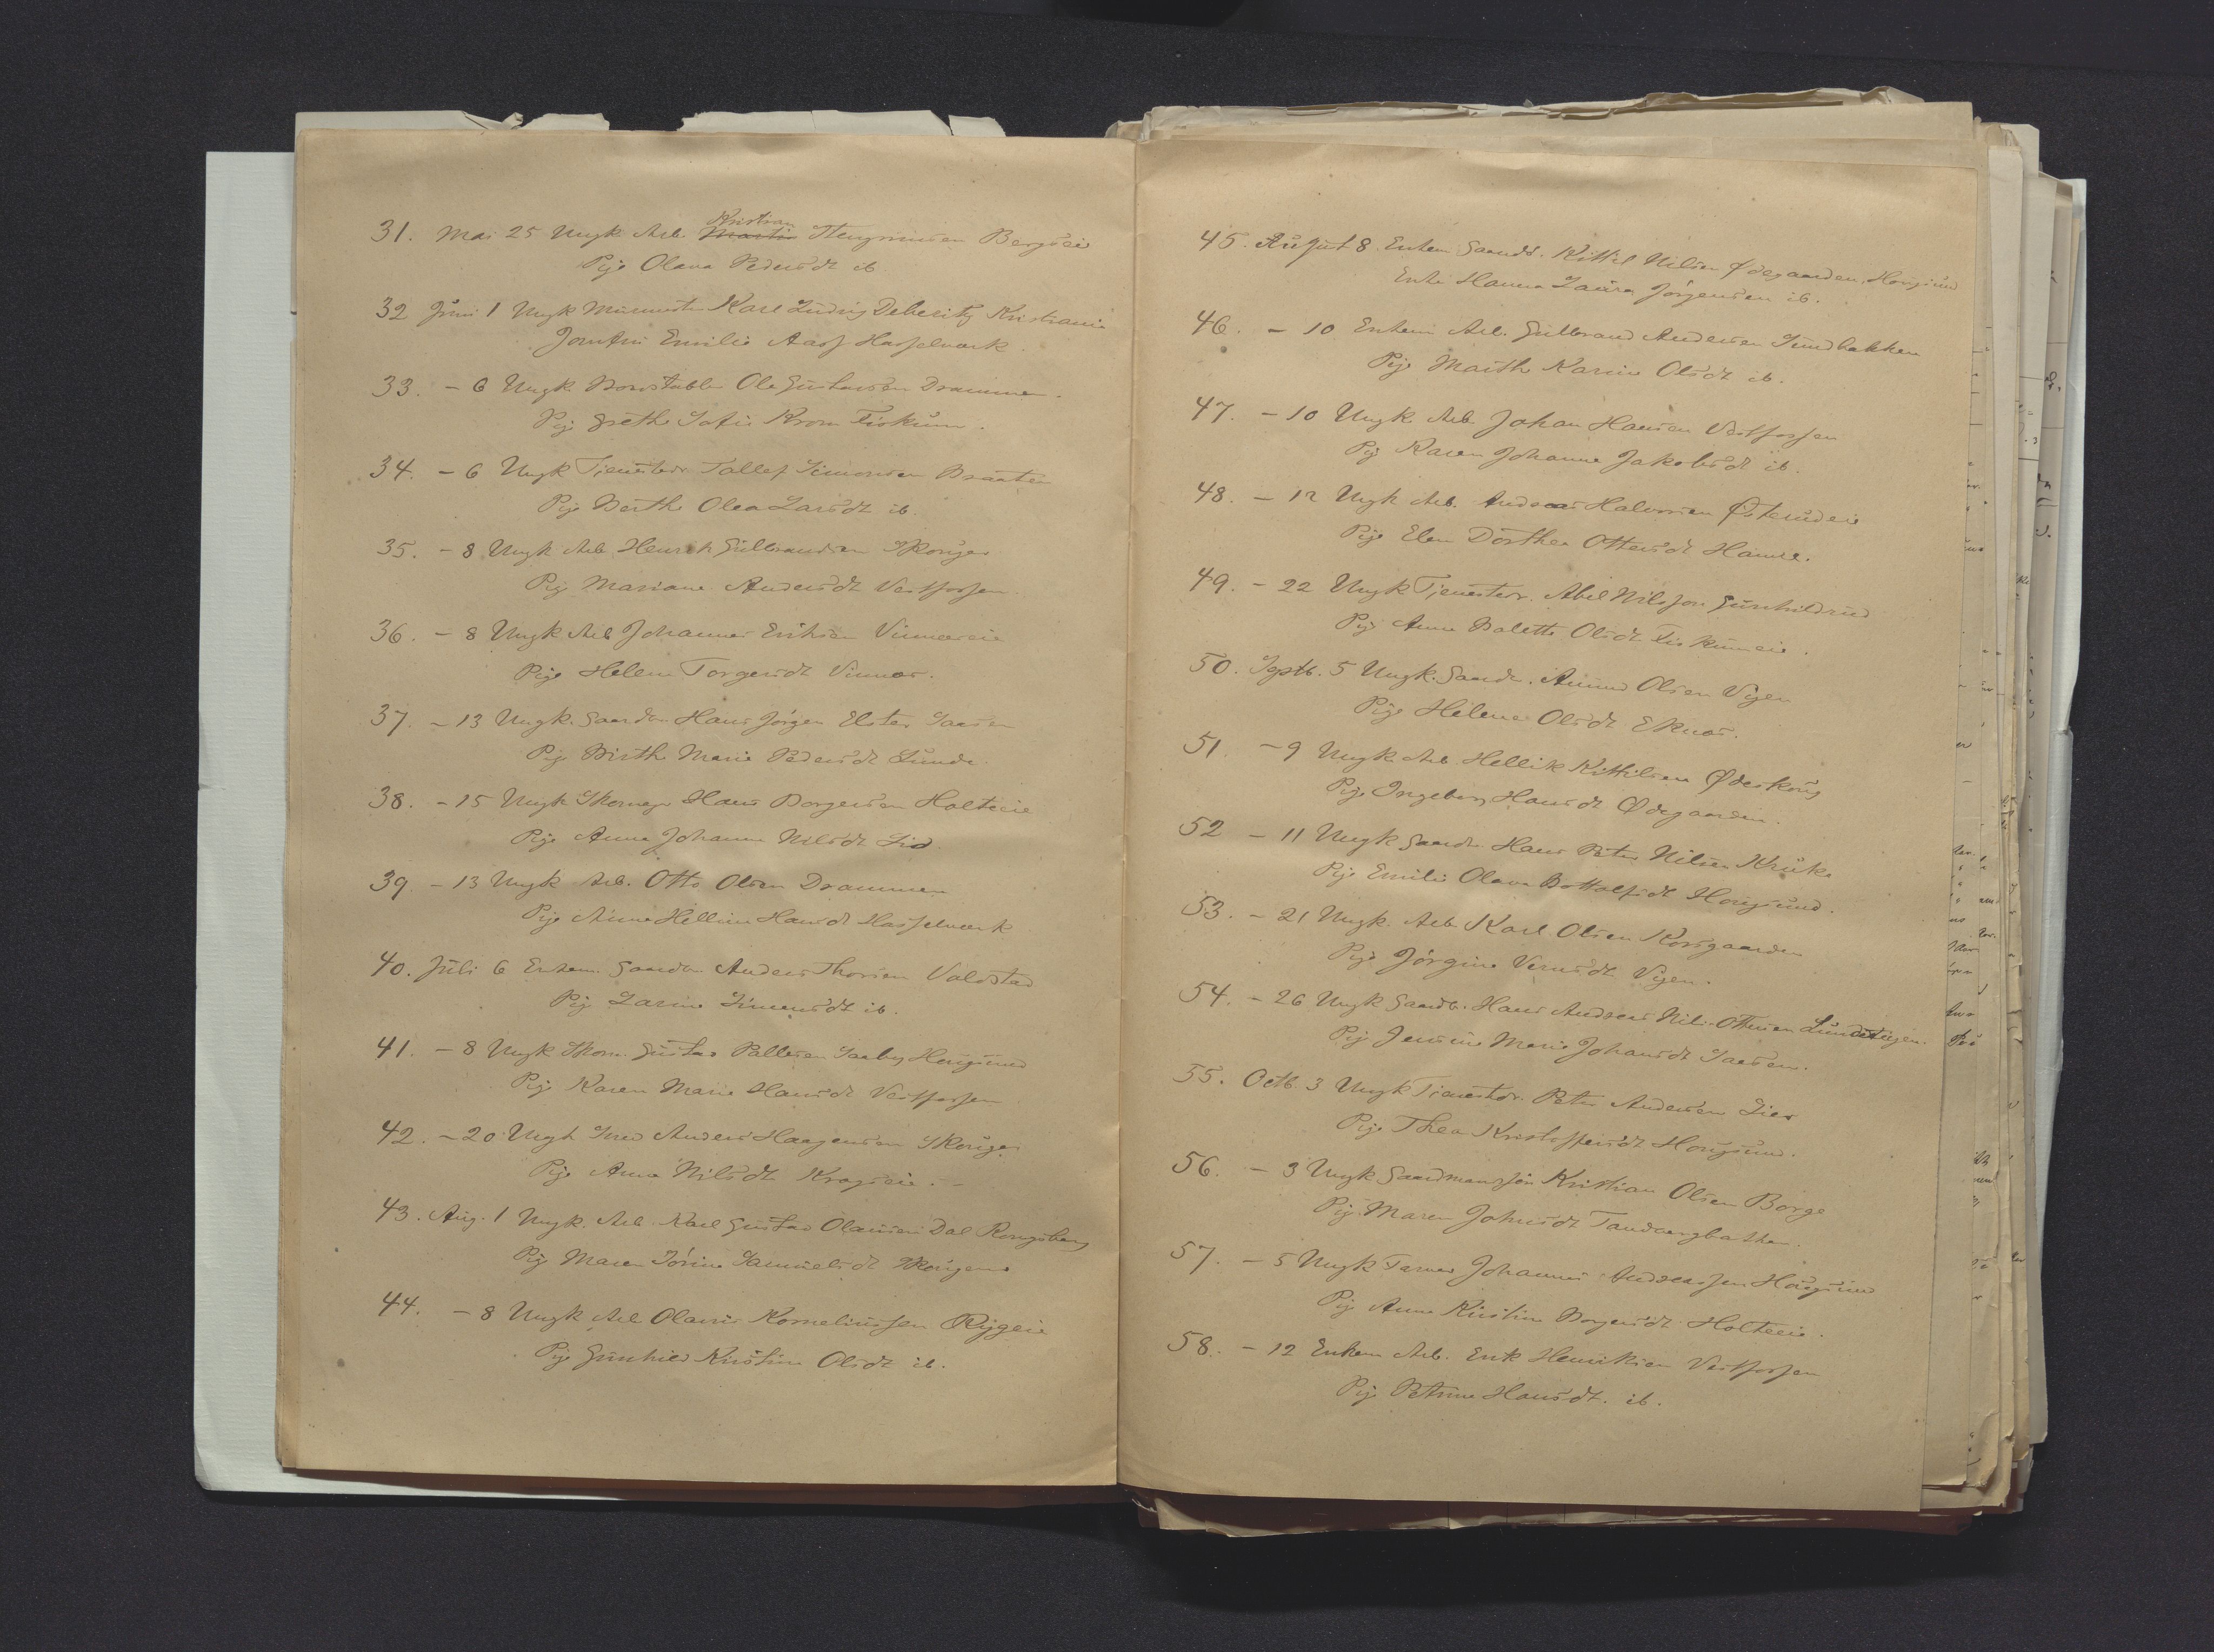 31. Mai 25 Ungk. Arb. Kristian Martin Stengrimsen Bergseie
Pige Olava Pedersdt ib
32 Juni 1 Ungk Murmester Karl Ludvig Deberitz Kristiania
Jomfru Emilie Aass Hasselværk.
33. - 6 Ungk Konstabler Ole Gustavsen Drammen.
Pig Grethe Sofie Krom Fiskum.
34. - 6 Ungk Tjenestedr Tallef Simonsen Braaten
Pige Berthe Olea Larsdt ib.
35. - 8 Ungk Arb. Henrik Gulbrandsen Skouger
Pig Mariane Andersdt Vestfossen
36. - 8 Ungk Arb Johannes Eriksen Vinnæseie
Pige Helene Torgersdt Vinnæs.
37. - 13 Ungk. Gaardbr. Hans Jörgen Elster Saasen
Pig Birthe Marie Pedersdt Lunde.
38. - 15 Ungk Skomager Hans Borgersen Holteeie
Pige Anne Johanne Nilsdt Lid
39. - 13 Ungk Arb. Otto Olsen Drammen
Pige Anne Helline Hansdt Hasselværk
40. Juli 6 Enkem. Gaardbr. Anders Thorsen Valdstad
Pig Larine Simensdt ib.
41. - 8 Ungk Skom. Gustav Pallesen Saaby Hougsund
Pig Karen Marie Hansdt Vestfossen
42. - 20 Ungk Smed Anders Haagensen Skouger
Pige Anne Nilsdt Kragseie. -
43. Aug. 1 Ungk. Arb. Karl Gustav Olausen Dal Kongsberg
Pig Maren Sörine Samuelsdt Skougene
44. - 8 Ungk Arb Olaus Korneliussen Rygeie
Pige Gunhild Kristine Olsdt ib.
45. August 8. Enkem Gaardb. Kittil Nilsen Ødegaarden, Hougsund
Enke Hanna Laura Jörgensen ib.
46. - 10 Enkem Arb. Gulbrand Andersen Sundbakken
Pige Marthe Karine Olsdt ib.
47. - 10 Ungk Arb. Johan Hansen Vestfossen
Pig Karen Johanne Jakobsdt ib.
48. - 12 Ungk Arb. Andreas Halvorsen Østerudeie
Pige Elen Dorthea Ottersdt Hamre.
49. - 22 Ungk Tjenestedr. Abel Nilsson Gunhildrud
Pige Anne Bolette Olsdt Fiskumeie.
50. Septb. 5 Ungk. Gaardb. Amund Olsen Vegen
Pige Helene Olsdt Eknæs.
51. - 9 Ungk Arb. Hellik Kittilsen Ødeskoug
Pige Ingeborg Hansdt Ødegaarden.
52 - 11 Ungk Gaardbr. Hans Peter Nilsen Kruke
Pige Emilie Olava Bottolfsdt Hougsund.
53. - 21 Ungk. Arb Karl Olsen Korsgaarden
Pige Jörgine Versdt Vegen.
54. - 26 Ungk Gaardb. Hans Andreas Nils-Ottersen Lundeteigen.
Pig Jensine Marie Johansdt Saasen.
55. Octb. 3 Ungk Tjenestdr. Peter Andersen Lier
Pige Thea Kristoffersdt Hougsund.
56. - 3 Ungk Gaardmanssön Kristian Olsen Borge
Pig Maren Johnsdt Tandbergbakken.
57. - 5 Ungk Farver Johannes Andreassen Hougsund
Pig Anne Kristine Borgersdt Holteeie.
58. - 12 Enkem Arb. Erik Henriksen Vestfossen
Pige Petrine Hansdt. ib.